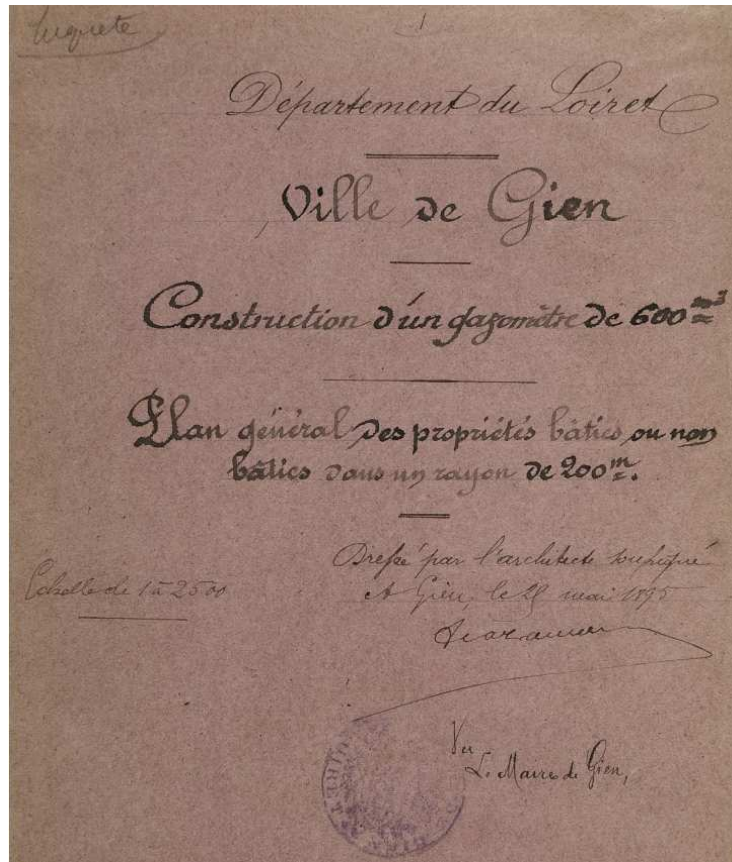 Enquête
1
Département du Loiret
Ville de Gien
Construction d'un gazomètre de 600 m3
Plan général des propriétés bâties ou non
bâties dans un rayon de 200 m.
Dressé par l'architecte soussigné
Echelle de 1 à 2500
A Gien, le 29 mai 1895
Vu
Le Maire de Gien,